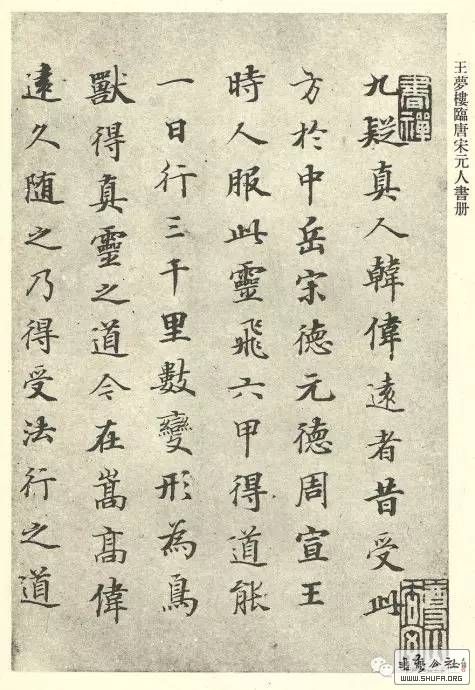 王夢樓臨唐宋元人書册
書禪
九疑真人韓偉遠者昔受此
方於中岳宋德元德周宣王
時人服此靈飛六甲得道能
一日行三千里數變形為鳥
獸得真靈之道今在嵩高偉
遠久随之乃得受法行之道
WWW.SHUFA.ORG